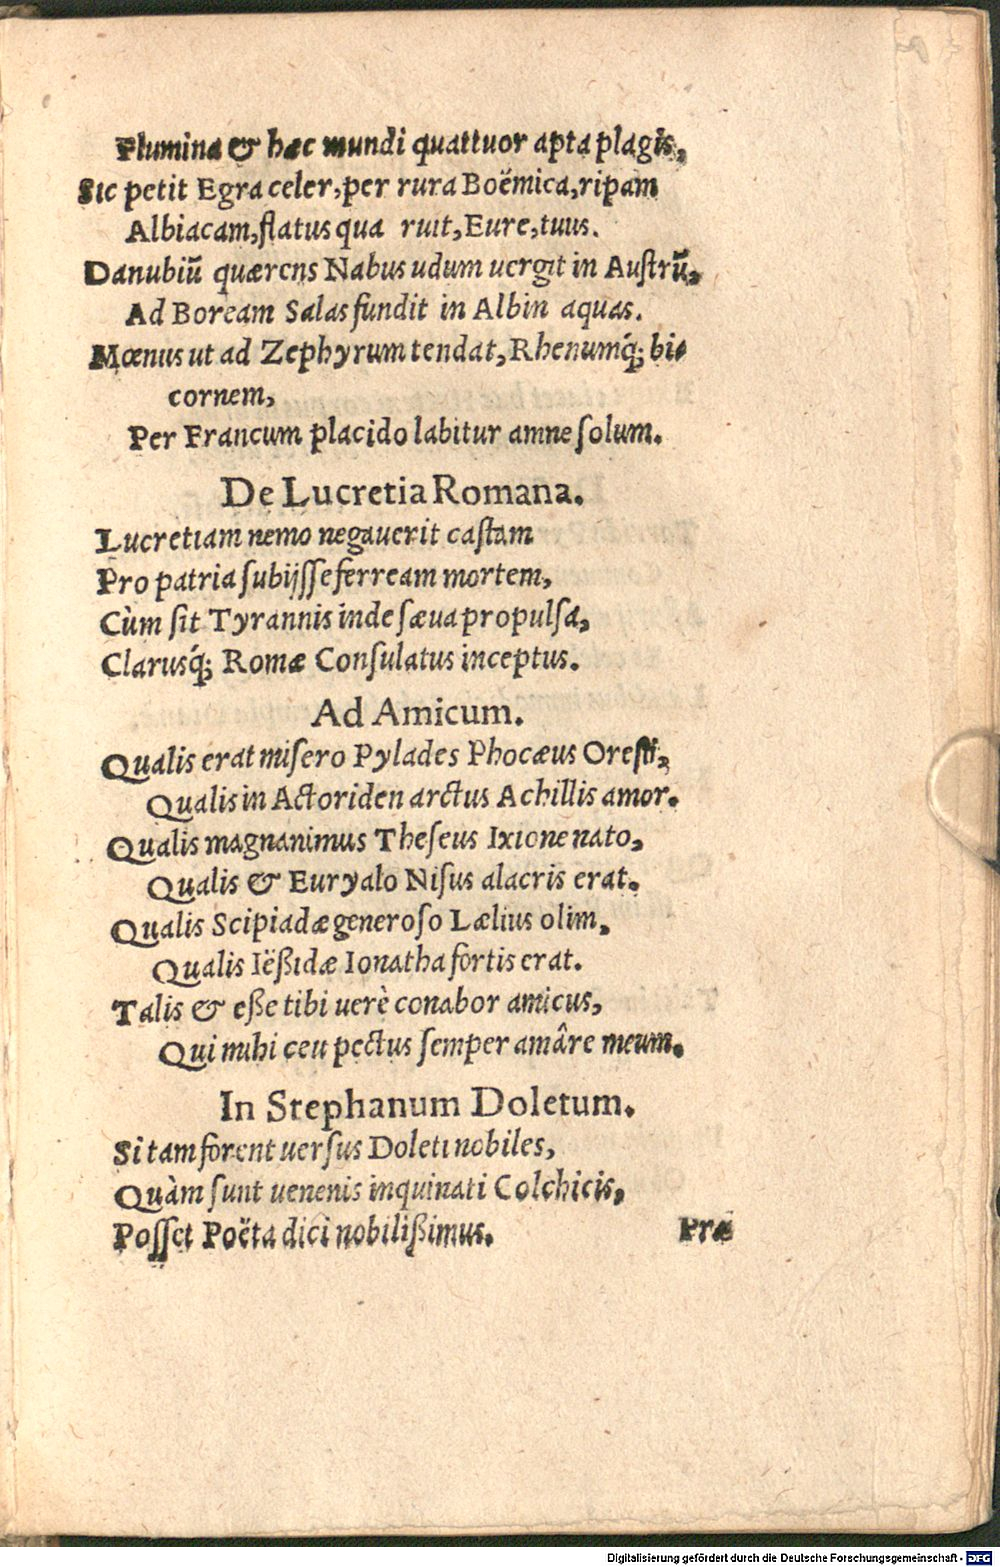 Flumina & hæc mundi quattuor apta plagis,
Sic petit Egra celer, per rura Boëmica, ripam
Albiacam, flatus qua ruit, Eure, tuus.
Danubiũ quærens Nabus udum uergit in Austrũ,
Ad Boream Salas fundit in Albin aquas.
Mœnus ut ad Zephyrum tendat, Rhenumq́; bi⸗
cornem,
Per Francum placido labitur amne solum.
De Lucretia Romana.
Lucretiam nemo negauerit castam
Pro patria subijsse ferream mortem,
Cùm sit Tyrannis inde sæua propulsa,
Clarusq́; Romæ Consulatus inceptus.
Ad Amicum.
Qualis erat misero Pylades Phocæus Oresti,
Qualis in Actoriden arctus Achillis amor.
Qualis magnanimus Theseus Ixione nato,
Qualis & Euryalo Nisus alacris erat.
Qualis Scipiadæ generoso Lælius olim,
Qualis Iëßidæ Ionatha fortis erat.
Talis & eße tibi uerè conabor amicus,
Qui mihi ceu pectus semper amâre meum.
In Stephanum Doletum.
Si tam forent uersus Doleti nobiles,
Quàm sunt uenenis inquinati Colchicis,
Posset Poëta dici nobilißimus.
Præ
Digitalisierung gefördert durch die Deutsche Forschungsgemeinschaft - DFG